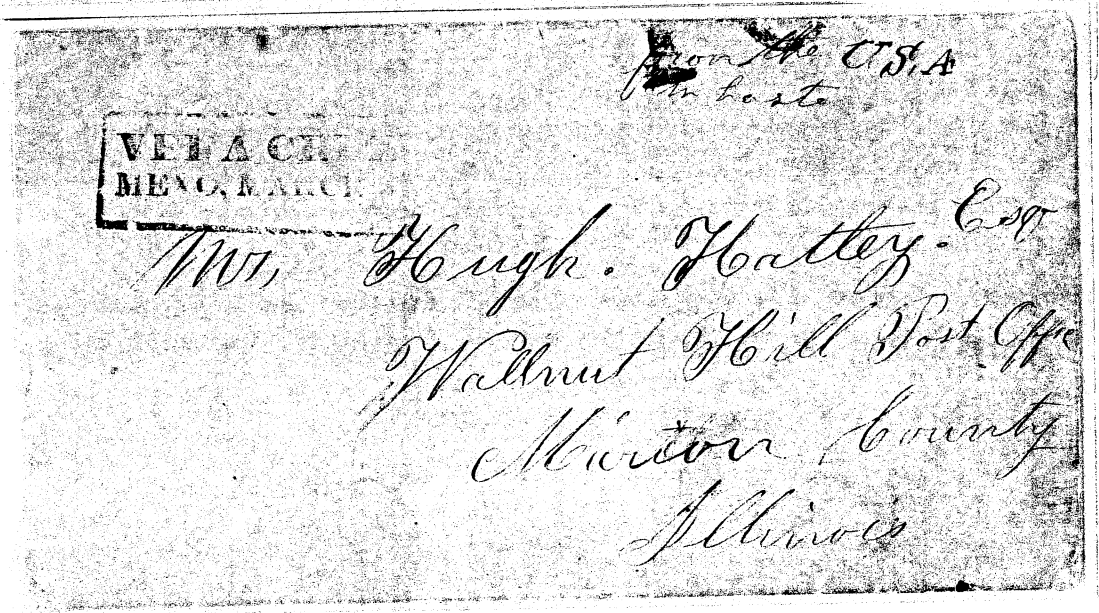 from the U.S.A
in haste
VERA CR
MEXO, MARCH
Mr, Hugh. Hatley. Esqr
Wallnut Hill Post Office
Marion County
Illinois